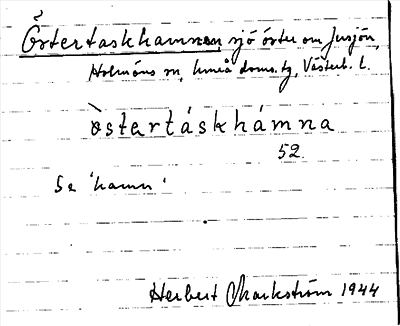 Östertaskhamnen sjö öster om Jusjön,
Holmöns sn, Umeå doms. tg, Västerb. l.
òstertáskhámna
52.
Se 'hamn'
Herbert Markström 1944